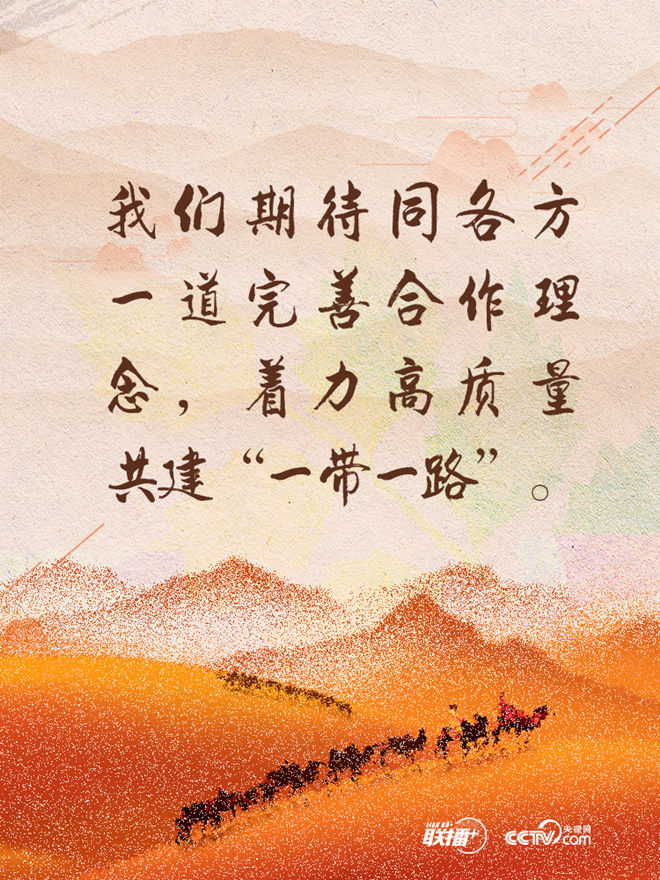 我们期待同各方
一道完善合作理
念，着力高质量
共建“一带一路”。
联播+
CCTV.com 央视网